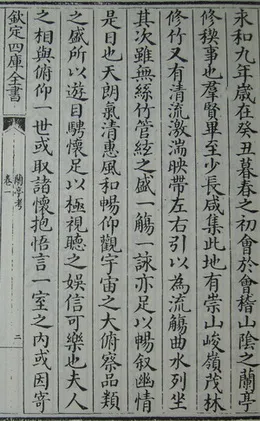 永和九年歲在癸丑暮春之初會於會稽山陰之蘭亭
修稧事也羣賢畢至少長咸集此地有崇山峻嶺茂林
修竹又有清流激湍映帶左右引以為流觴曲水列坐
其次雖無絲竹管絃之盛一觴一詠亦足以暢叙幽情
是日也天朗氣清惠風和暢仰觀宇宙之大俯察品類
之盛所以遊目騁懷足以極視聽之娱信可樂也夫人
之相與俯仰一世或取諸懷抱悟言一室之内或因寄
欽定四庫全書
蘭亭考
卷一
二